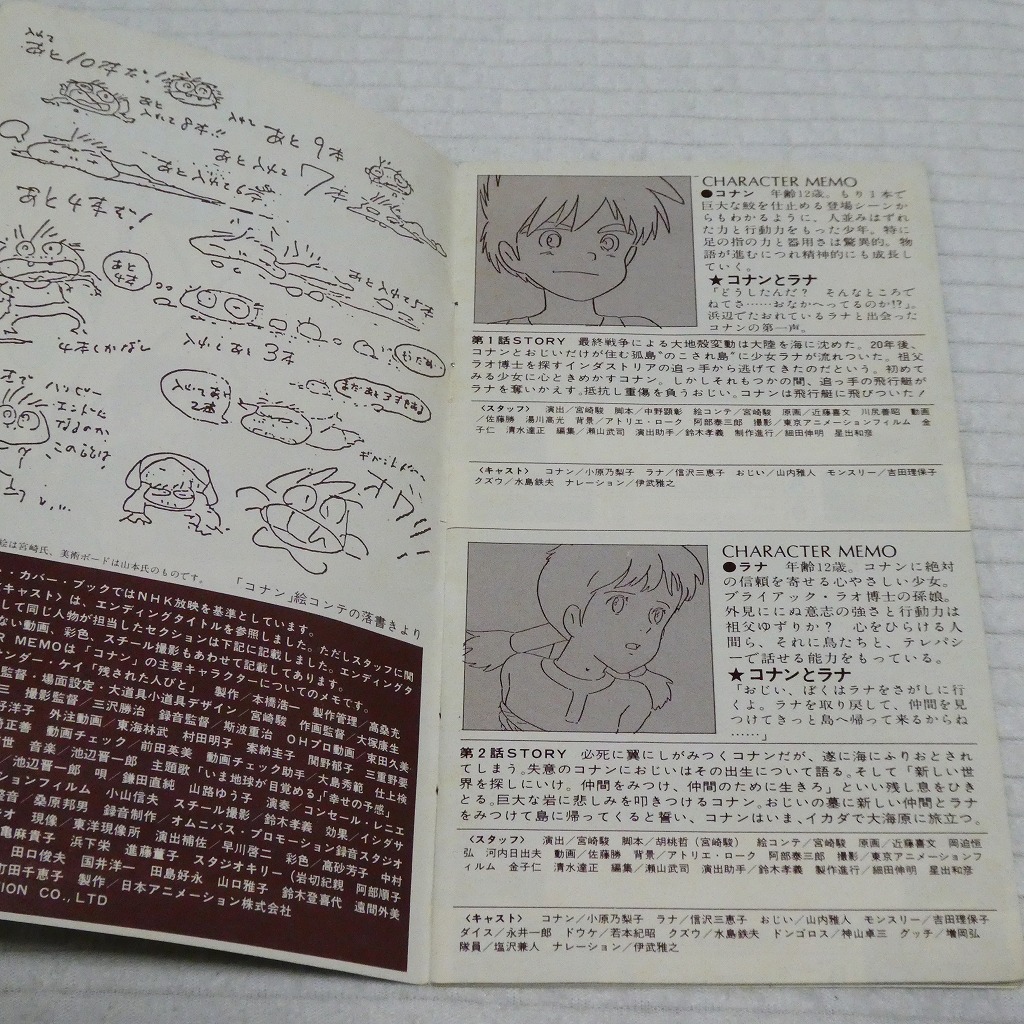 あと10本だ!
あと9本
7本
あと4本だ!
あと
4本
あと3本
「コナン」絵コンテの落書きより
絵は宮崎氏、美術ボードは山本氏のものです。
・カバー・ブックではNHK放映を基準としています。
キャスト〉は、エンディングタイトルを参照しました。ただしスタッフに関
して同じ人物が担当したセクションは下記に記載しました。エンディングタ
ない動画、彩色、スチール撮影もあわせて記載してあります。
R MEMOは「コナン」の主要キャラクターについてのメモです。
ンダー・ケイ「残された人びと」 製作/本橋浩一 製作管理/高桑充
監督・場面設定・大道具小道具デザイン/宮崎駿 作画監督/大塚康生
三 撮影監督/三沢勝治 録音監督/斯波重治 OHプロ動画/東田久美
好洋子 外注動画/東海林武 村田明子 案納圭子 関野郁子 三重野要
崎正善 動画チェック/前田英美 動画チェック助手/大島秀範 仕上検
音楽/池辺晋一郎 主題歌「いま地球が目覚める」「幸せの予感」
池辺晋一郎 唄/鎌田直純 山路ゆう子 演奏/コンセール・レニエ
ションフィルム 小山信夫 スチール撮影/鈴木孝義 効果/イシダサ
整音/桑原邦男 録音制作/オムニバス・プロモーション録音スタジオ
オ 現像/東洋現像所 演出補佐/早川啓二 彩色/高砂芳子 中村
亀麻貴子 浜下栄 進藤薫子 スタジオキリー(岩切紀親 阿部順子
田口俊夫 国井洋一 田島好永 山口雅子 鈴木登喜代 遠間外美
町田千恵子 製作/日本アニメーション株式会社
TION CO.,LTD
CHARACTER MEMO
●コナン 年齢12歳。もり1本で
巨大な鮫を仕止める登場シーンか
らもわかるように、人並みはずれ
た力と行動力をもった少年。特に
足の指の力と器用さは驚異的。物
語が進むにつれ精神的にも成長し
ていく。
★コナンとラナ
「どうしたんだ? そんなところで
ねてさ……おなかへってるのか!?」。
浜辺でたおれているラナと出会った
コナンの第一声。
第1話STORY 最終戦争による大地殻変動は大陸を海に沈めた。20年後、
コナンとおじいだけが住む孤島"のこされ島"に少女ラナが流れついた。祖父
ラオ博士を探すインダストリアの追っ手から逃げてきたのだという。初めて
みる少女に心ときめかすコナン。しかしそれもつかの間、追っ手の飛行艇が
ラナを奪いかえす。抵抗し重傷を負うおじい。コナンは飛行艇に飛びついた!
〈スタッフ〉 演出/宮崎駿 脚本/中野顕彰 絵コンテ/宮崎駿 原画/近藤喜文 川尻善昭 動画
/佐藤勝 湯川高光 背景/アトリエ・ローク 阿部泰三郎 撮影/東京アニメーションフィルム 金
子仁 清水達正 編集/瀬山武司 演出助手/鈴木孝義 制作進行/細田伸明 星出和彦
〈キャスト〉 コナン/小原乃梨子 ラナ/信沢三恵子 おじい/山内雅人 モンスリー/吉田理保子
クズウ/水島鉄夫 ナレーション/伊武雅之
CHARACTER MEMO
●ラナ 年齢12歳。コナンに絶対
の信頼を寄せる心やさしい少女。
ブライアック・ラオ博士の孫娘。
外見ににぬ意志の強さと行動力は
祖父ゆずりか? 心をひらける人
間ら、それに鳥たちと、テレパシ
ーで話せる能力をもっている。
★コナンとラナ
「おじい、ぼくはラナをさがしに行
くよ。ラナを取り戻して、仲間を見
つけてきっと島へ帰って来るからね
……」
第2話STORY 必死に翼にしがみつくコナンだが、遂に海にふりおとされ
てしまう。失意のコナンにおじいはその出生について語る。そして「新しい世
界を探しにいけ。仲間をみつけ、仲間のために生きろ」といい残し息をひき
とる。巨大な岩に悲しみを叩きつけるコナン。おじいの墓に新しい仲間とラナ
をみつけて島に帰ってくると誓い、コナンはいま、イカダで大海原に旅立つ。
〈スタッフ〉 演出/宮崎駿 脚本/胡桃哲(宮崎駿) 絵コンテ/宮崎駿 原画/近藤喜文 岡迫恒
弘 河内日出夫 動画/佐藤勝 背景/アトリエ・ローク 阿部泰三郎 撮影/東京アニメーションフ
ィルム 金子仁 清水達正 編集/瀬山武司 演出助手/鈴木孝義 製作進行/細田伸明 星出和彦
〈キャスト〉 コナン/小原乃梨子 ラナ/信沢三恵子 おじい/山内雅人 モンスリー/吉田理保子
ダイス/永井一郎 ドウケ/若本紀昭 クズウ/水島鉄夫 ドンゴロス/神山卓三 グッチ/増岡弘
隊員/塩沢兼人 ナレーション/伊武雅之